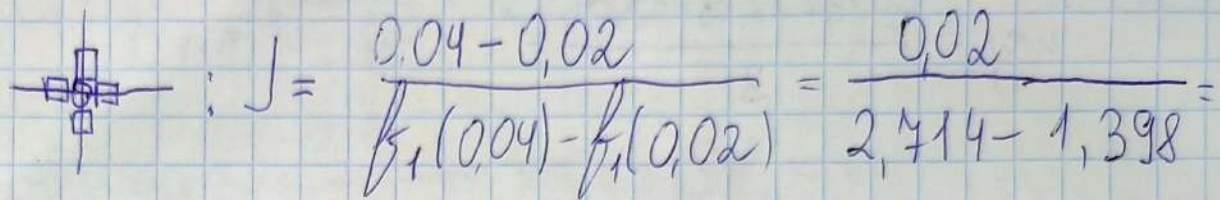 : J = (0.04 - 0,02) / (f₁(0,04) - f₁(0,02)) = 0,02 / (2,714 - 1,398) =